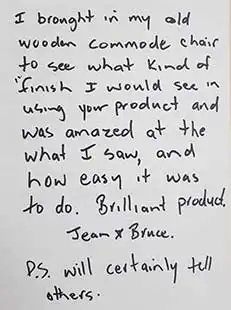 I brought in my old
wooden commode chair
to see what kind of
"finish I would see in
using your product and
was amazed at the
what I saw, and
how easy it was
to do. Brilliant product.
Jean & Bruce.
P.S. will certainly tell
others.